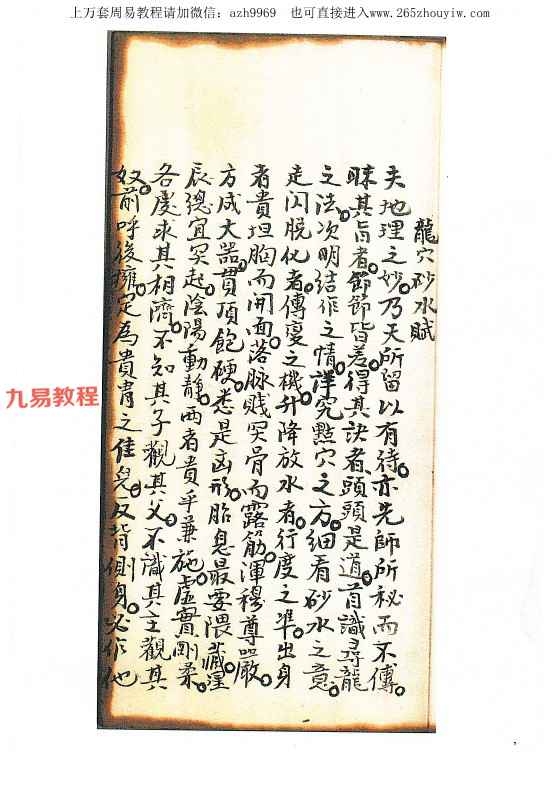 上万套周易教程请加微信：azh9969　也可直接进入www.265zhouyiw.com
龍穴砂水賦
夫地理之妙。乃天所留以有待。亦先師所秘而不傳。
昧其旨者。節節皆差。得其訣者。頭頭是道。首識尋龍
之法。次明結作之情。詳究點穴之方。細看砂水之意。
走閃脱化者。傳變之機。升降放水者。行度之準。出身
者貴坦胸而開面。落脉賤突骨而露筋。渾穆尊嚴。
方成大器。貫頂飽硬。悉是凶形。胎息最要隈藏。星
辰總宜突起。陰陽動靜。两者貴乎兼施。虚實剛柔。
各處求其相濟。不知其子觀其父。不識其主觀其
奴。前呼後擁。定為貴胄之佳兒。反背側身。必作他
九易教程